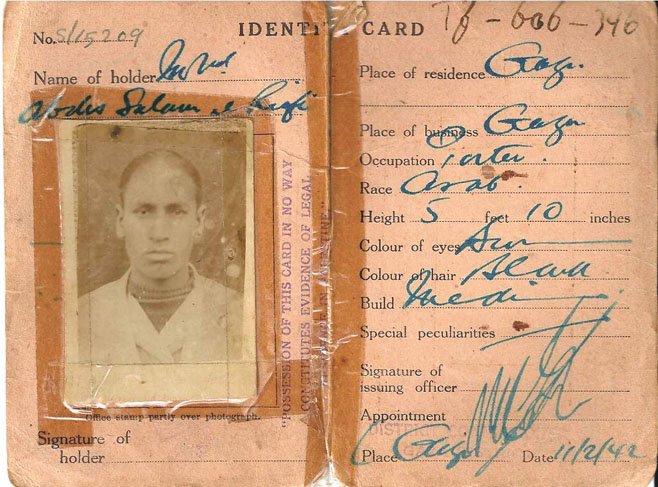 No. S/15209
IDENTITY CARD
T6-606-346
Name of holder Mhd.
Abdes Salam el
"POSSESSION OF THIS CARD IN NO WAY
CONSTITUTES EVIDENCE OF LEGAL
IN PALESTINE."
Office stamp partly over photograph.
Signature of
holder
Place of residence Gaza
Place of business Gaza
Occupation Porter.
Race Arab.
Height 5 feet 10 inches
Colour of eyes
Colour of hair Black
Build Medium
Special peculiarities
Signature of
issuing officer
Appointment
Place Gaza Date 11/2/42